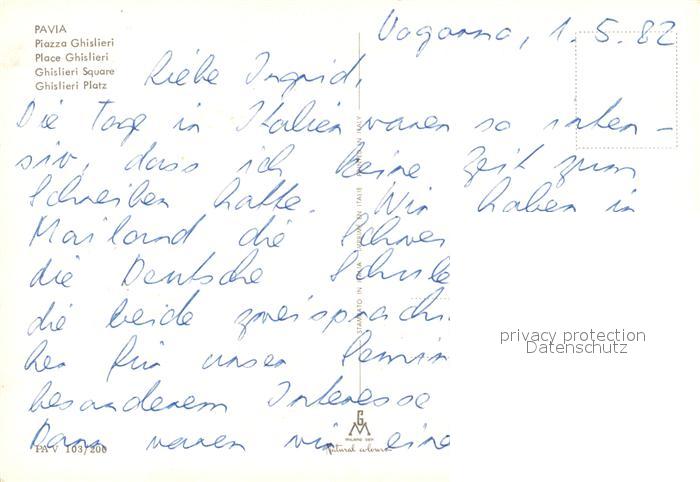 PAVIA
Piazza Ghislieri
Place Ghislieri
Ghislieri Square
Ghislieri Platz
Vogorno, 1.5.82
Liebe Ingrid,
Die Tage in Italien waren so inten-
siv, dass ich keine Zeit zum
Schreiben hatte. Wir haben in
Mailand die Schwei
die Deutsche Schule
die beide zweisprachi
her für unser Semin
besonderem Interesse
Dann waren wir eine
STAMPATO IN ITALIA IMPRIMÉ EN ITALIE PRINTED IN ITALY
privacy protection
Datenschutz
GM
MILANO
natural colours
PA V 103/200